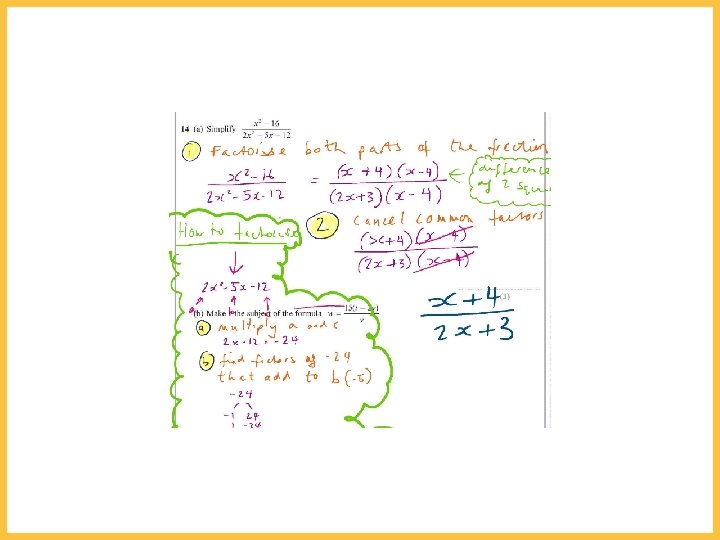 14 (a) Simplify x² – 16 / 2x² – 5x – 12
1 Factorise both parts of the fraction
x²-16 / 2x²-5x-12 = (x+4)(x-4) / (2x+3)(x-4) ← difference of 2
How to factorise
2 Cancel common factors
(x+4)(x-4) / (2x+3)(x-4)
2x²-5x-12
a b
x+4 / 2x+3
(3)
(b) Make the subject of the formula
a multiply a and c
2x-12 = -24
b find factors of -24
that add to b (-5)
-24
-1 24
1 -24